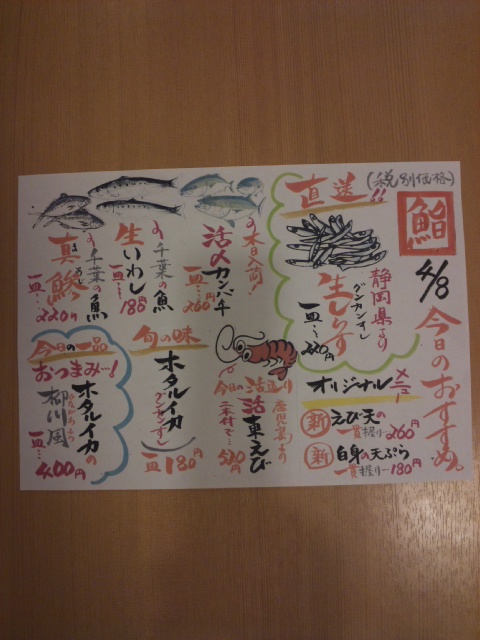 (税別価格)
鮨
4/8 今日のおすすめ。
直送!!
静岡県より
グンカンすし
生しらす
一皿…220円
オリジナルメニュー
新 えび天の
一貫握り 260円
新 白身の天ぷら
一貫握り 180円
本日入荷!
活〆カンパチ
一皿… 260円
今日の活造り
鹿児島より
活車えび
二本付で… 520円
千葉の魚
生いわし
一皿… 180円
旬の味
ホタルイカ
(グンカンすし)
一皿 180円
千葉の魚
真鯵
まあじ
一皿… 220円
今日の一品
おつまみ…!
ホタルイカの
柳川風
やながわふう
一皿… 400円